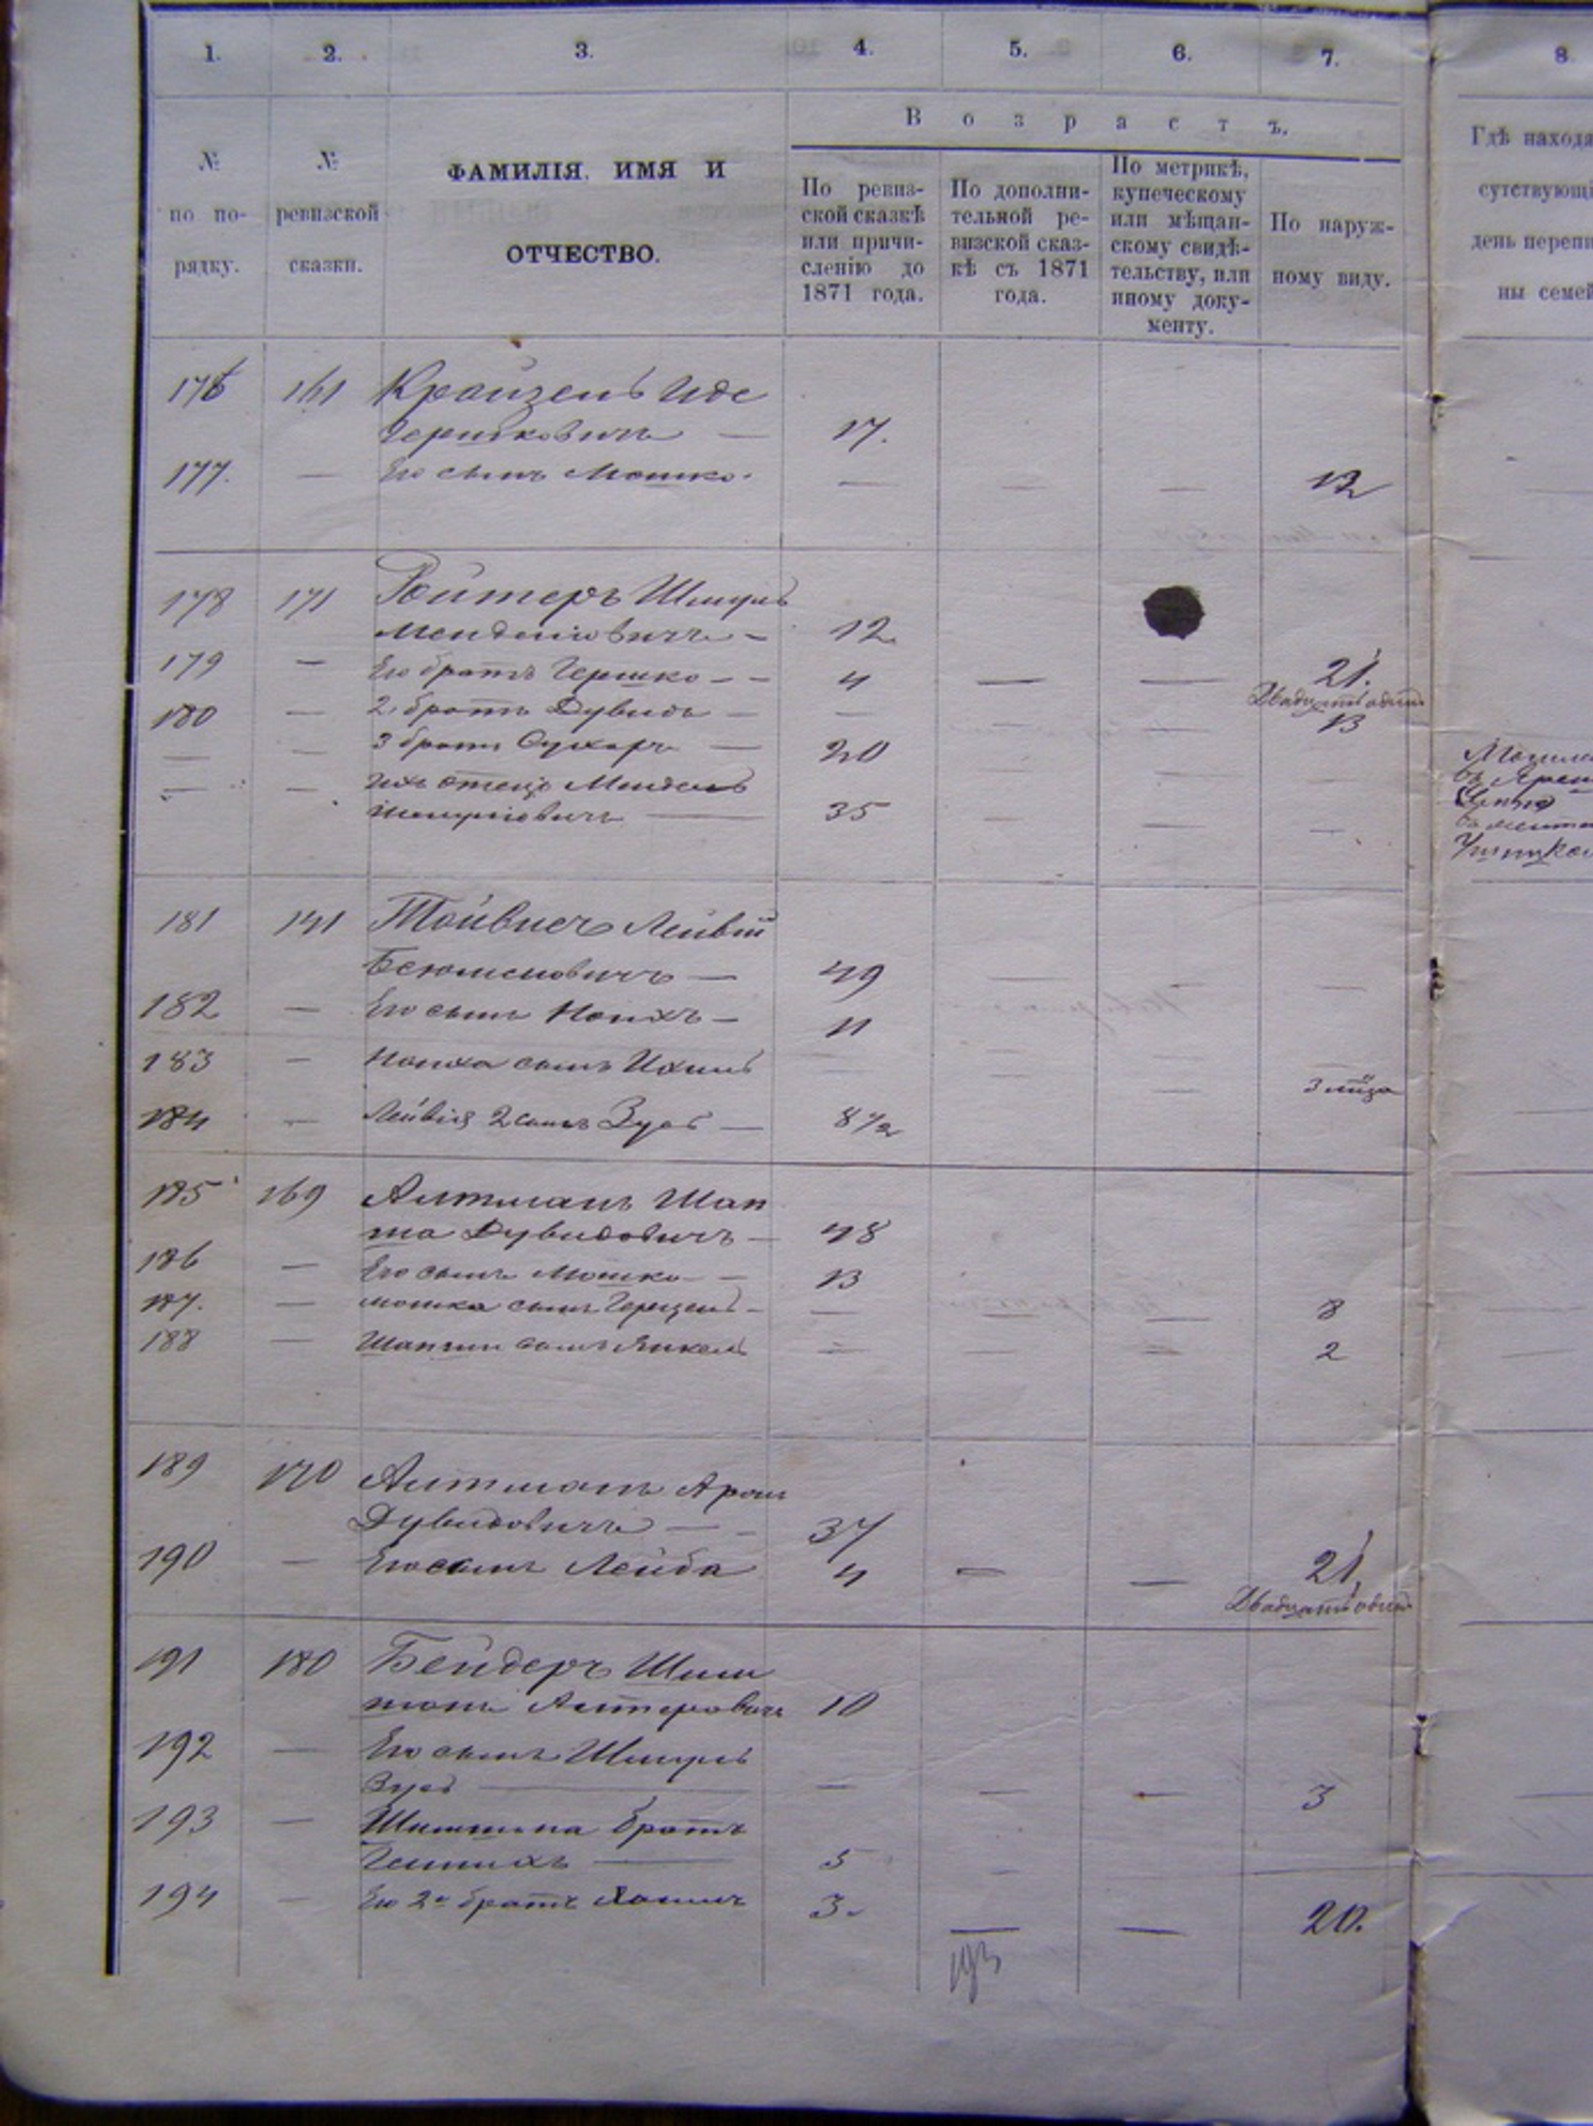 1. 2. 3. 4. 5. 6. 7. 8.
В о з р а с т ъ.
№ по по- рядку.
№ ревизской сказки.
ФАМИЛІЯ, ИМЯ И
ОТЧЕСТВО.
По ревиз-
ской сказкѣ
или причи-
сленію до
1871 года.
По дополни-
тельной ре-
визской сказ-
кѣ съ 1871
года.
По метрикѣ,
купеческому
или мѣщан-
скому свидѣ-
тельству, или
иному доку-
менту.
По наруж-
ному виду.
Гдѣ находя
сутствующі
день перепи
ны семей
176 161 Крайзель Иде
Гершковичъ — 17.
177. — Его сынъ Мошко. — — — 12
178 171 Ройтеръ Шмуль
Менделіовичъ — 12
179 — Его братъ Гершко — — 4 — — 21.
Двадцать одинъ
180 — 2 братъ Дувидъ — — 13
— — 3 братъ — 20
— — Ихъ отецъ Мендель
Шмуліовичъ — 35
181 141 Тойвнеръ Лейвій
— 49
182 — Его сынъ Нонхъ — 11
183 — Нонха сынъ Ихилъ — 3
184 — Лейвія 2 сынъ Зусь — 8 1/2
185 169 Алтманъ Шап
ша Дувидовичъ — 48
186 — Его сынъ Мошко — 13
187. — Мошка сынъ Герщель — — — — 8
188 — Шапши сынъ Янкель — — — 2
189 170 Алтманъ Аронъ
Дувидовичъ — 37
190 — Его сынъ Лейба 4 — — 21,
Двадцать одинъ
191 180 Бейдеръ Шим
шонъ Алтеровичъ 10
192 — Его сынъ Шмуль
Зусь — — — — 3
193 — Шимшона братъ
— 5
194 — Его 2й братъ 3. — — 20.